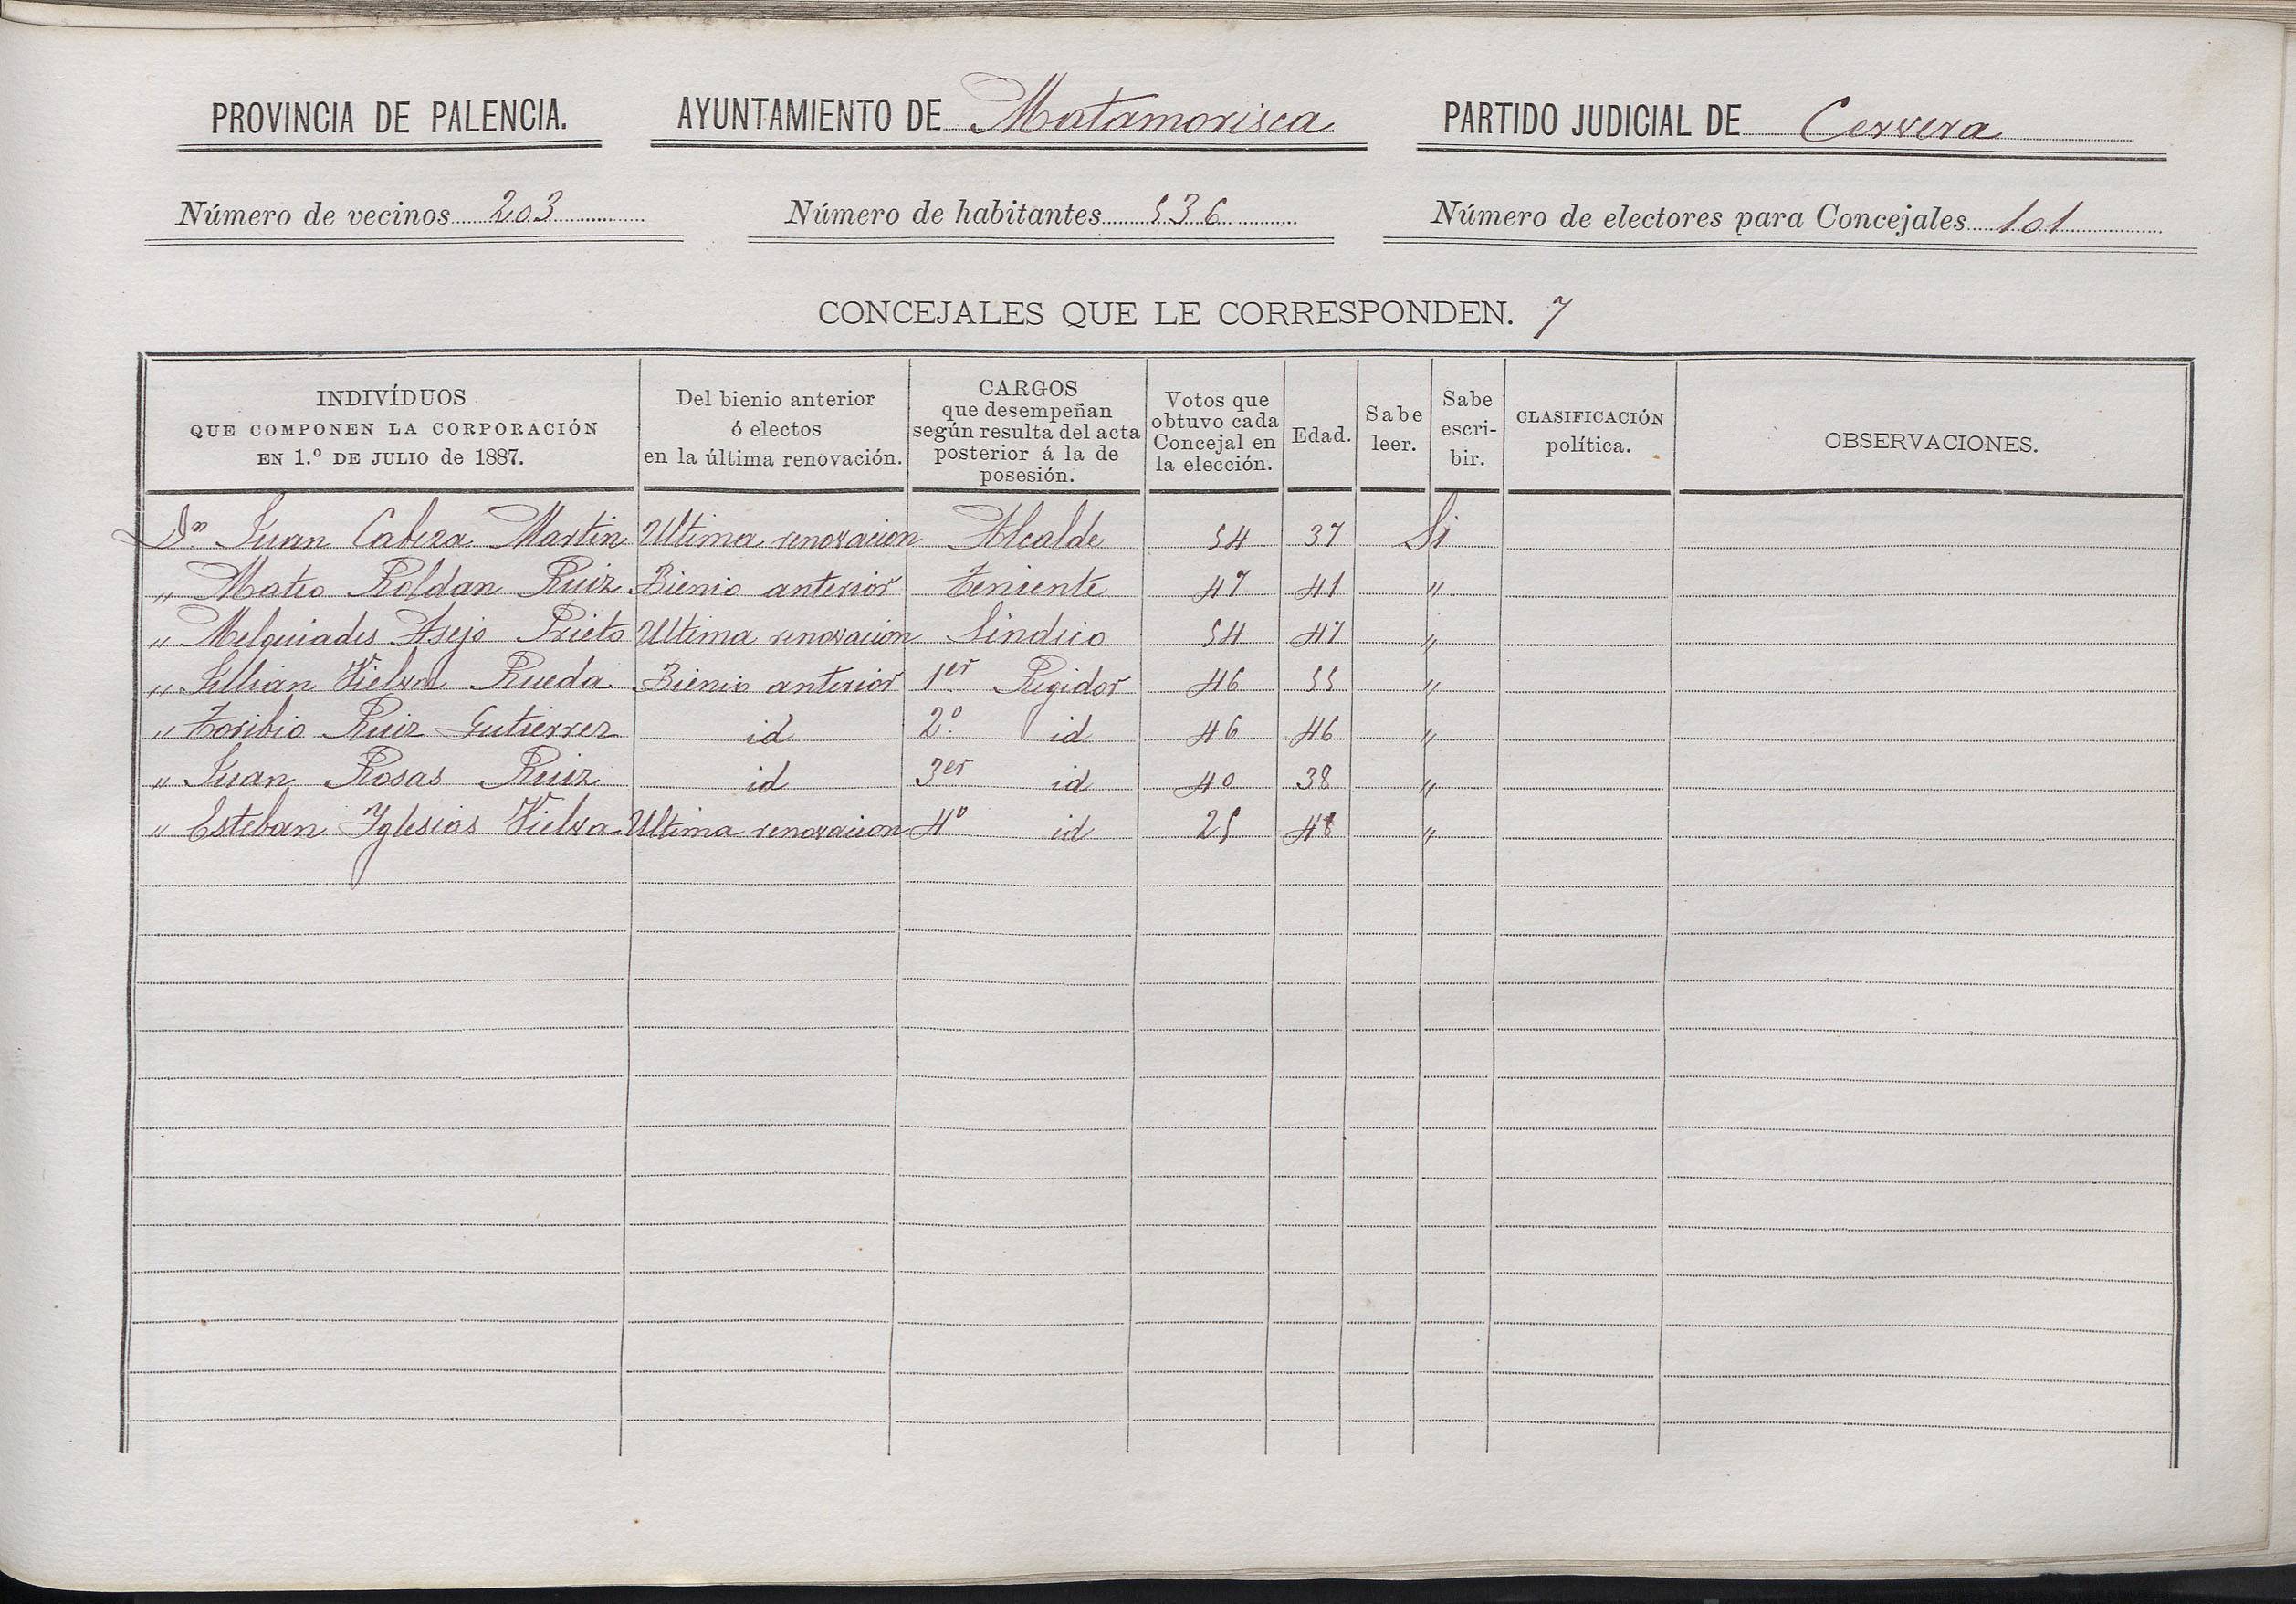 PROVINCIA DE PALENCIA. AYUNTAMIENTO DE Matamorisca PARTIDO JUDICIAL DE Cervera
Número de vecinos 203 Número de habitantes 536 Número de electores para Concejales 101
CONCEJALES QUE LE CORRESPONDEN. 7
INDIVÍDUOS
QUE COMPONEN LA CORPORACIÓN
EN 1.º DE JULIO de 1887.
Del bienio anterior
ó electos
en la última renovación.
CARGOS
que desempeñan
según resulta del acta
posterior á la de
posesión.
Votos que
obtuvo cada
Concejal en
la elección.
Edad.
Sabe
leer.
Sabe
escri-
bir.
CLASIFICACIÓN
política.
OBSERVACIONES.
Dn Juan Cabeza Martin Ultima renovacion Alcalde 54 37 Si
" Mateo Roldan Ruiz Bienio anterior Teniente 47 41 "
" Melquiades Asejo Prieto Ultima renovacion Sindico 54 47 "
" Vielva Rueda Bienio anterior 1er Regidor 46 55 "
" Toribio Ruiz Gutierrez id 2º id 46 46 "
" Juan Rosas Ruiz id 3er id 40 38 "
" Esteban Yglesias Vielva Ultima renovacion 4º id 25 48 "